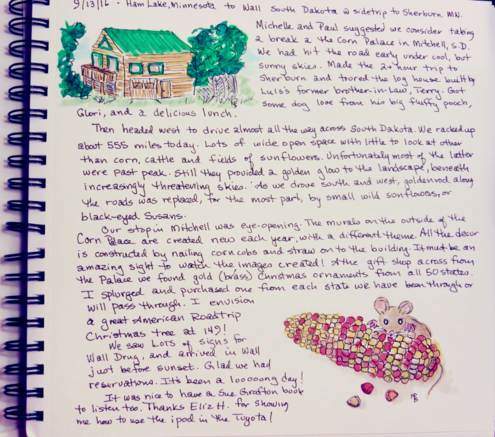 9/13/16 - Ham Lake, Minnesota to Wall South Dakota w sidetrip to Sherburn, MN.
Michelle and Paul suggested we consider taking
a break @ the Corn Palace in Mitchell, S.D.
We had hit the road early under cool, but
sunny skies. Made the 2+ hour trip to
Sherburn and toured the log house built by
Lulu's former brother-in-law, Terry. Got
some dog love from his big fluffy pooch,
Glori, and a delicious lunch.
Then headed west to drive almost all the way across South Dakota. We racked up
about 555 miles today. Lots of wide open space with little to look at other
than corn, cattle and fields of sunflowers. Unfortunately most of the latter
were past peak. Still they provided a golden glow to the landscape, beneath
increasingly threatening skies. As we drove south and west, goldenrod along
the roads was replaced, for the most part, by small wild sunflowers, or
black-eyed Susans.
Our stop in Mitchell was eye-opening. The murals on the outside of the
Corn Palace are created new each year, with a different theme. All the decor
is constructed by nailing corn cobs and straw on to the building. It must be an
amazing sight to watch the images created! At the gift shop across from
the Palace we found gold (brass) Christmas ornaments from all 50 states.
I splurged and purchased one from each state we have been through or
will pass through. I envision
a great American Roadtrip
Christmas tree at 149!
We saw LOTS of signs for
Wall Drug, and arrived in Wall
just before sunset. Glad we had
reservations. It's been a looooong day!
It was nice to have a Sue Grafton book
to listen too. Thanks Eliz H. for showing
me how to use the ipod in the Toyota!